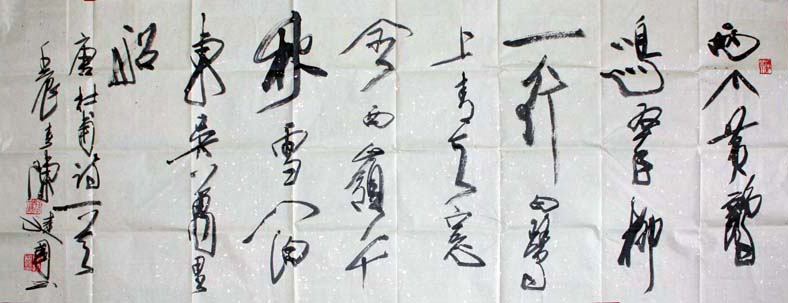 两个黄鹂
鸣翠柳
一行白鹭
上青天窗
含西嶺千
秋雪门泊
東吴萬里
船
唐杜甫诗一首
壬辰